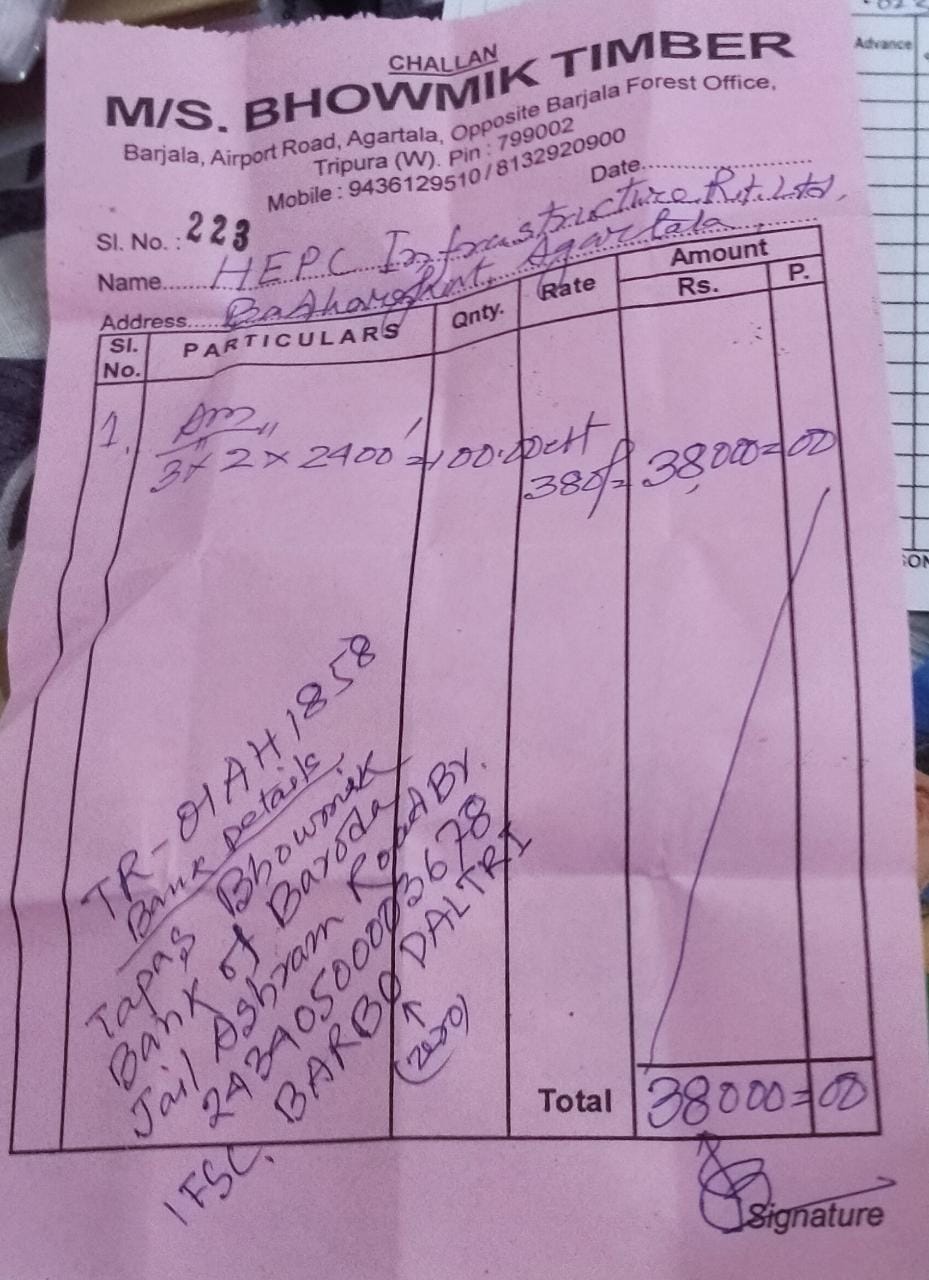 CHALLAN
M/S. BHOWMIK TIMBER
Barjala, Airport Road, Agartala, Opposite Barjala Forest Office,
Tripura (W). Pin : 799002
Mobile : 9436129510 / 8132920900
Date....................
Sl. No. : 223
Name...... HEPC Infrastructure Pvt. Ltd.
Address..... Agartala
Sl. No. PARTICULARS Qnty. Rate Amount
Rs. P.
1. 3" x 2" x 2400' = 100.00 cft 380/= 38,000=00
TR-01AH1858
Bank Details
Tapas Bhowmik
Bank of Baroda
Jail Ashram Road Br.
24340500003678
IFSC. BARB0DALTRI
↑
(zero)
Total 38000=00
Signature
Advance